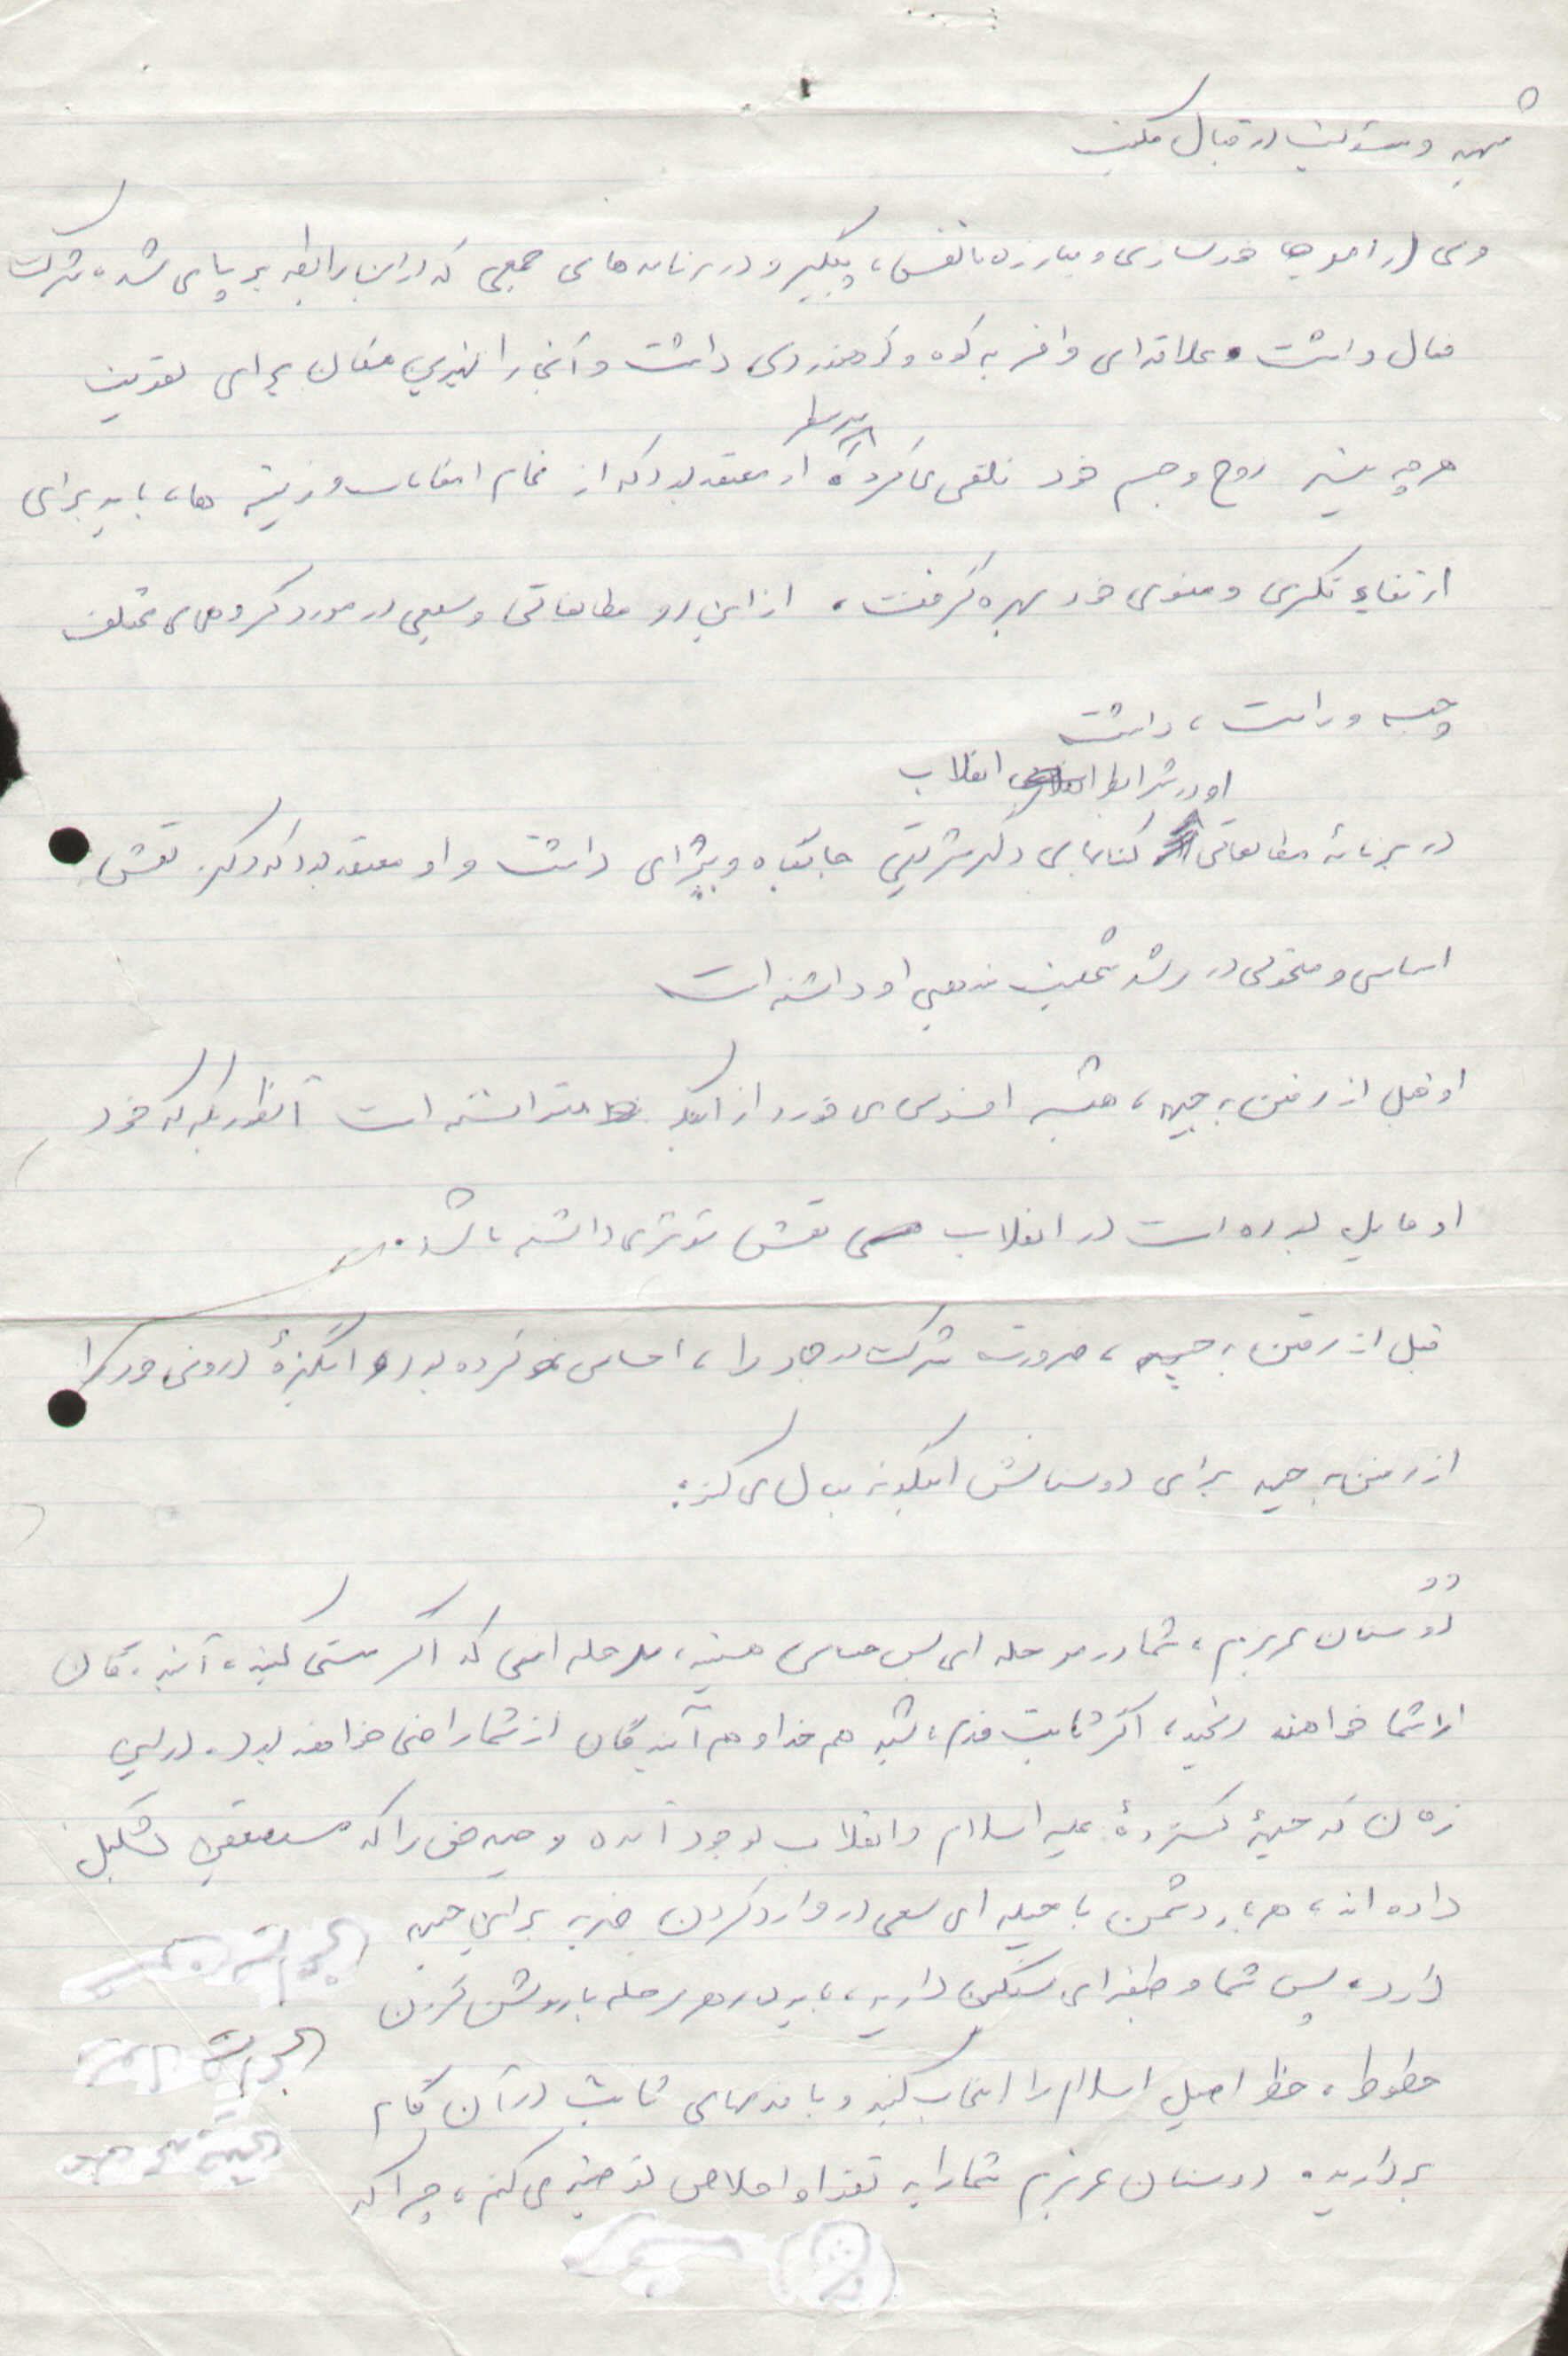 شهید و مسئولیت در قبال مکتب
وی در امر خودسازی و مبارزه با نفس، پیگیر و در برنامه های جمعی که در این رابطه بر پا می شده شرکت
فعال داشت و علاقه ای وافر به کوه و کوهنوردی داشت و آنجا را بهترین مکان برای تقویت
هر چه بیشتر روح و جسم خود تلقی می کرد او معتقد بود که از تمام امکانات و زمینه ها، باید برای
ارتقاء فکری و معنوی خود بهره گرفت، از این رو مطالعاتی وسیعی در مورد گروههای مختلف
چپ و راست، داشت
او در شرایط انقلاب
در برنامه مطالعاتی کتابهای دکتر شریعتی جایگاه ویژه ای داشت و او معتقد بود که دکتر نقش
اساسی و در رشد شخصیت مذهبی او داشته است
او قبل از رفتن به جبهه، همیشه افسوس می خورد از اینکه نتوانسته است آنطوریکه که خود
او مایل بوده است در انقلاب نقش مؤثری داشته باشد.
قبل از رفتن به جبهه، ضرورت شرکت در جهاد را، احساس کرده بود و انگیزهٔ درونی خود را
از رفتن به جبهه برای دوستانش اینگونه بیان می کند:
دوستان عزیزم، شما در مرحله ای بس حساس هستید، مرحله ای که اگر سستی کنید، آیندگان
از شما خواهند رنجید، اگر ثابت قدم باشید هم خدا و هم آیندگان از شما راضی خواهند بود. در این
زمان که جبههٔ گستردهٔ علیه اسلام و انقلاب بوجود آمده و جبهه حق را که مستضعفین تشکیل
داده اند، هر بار دشمن با حیله ای سعی در وارد کردن ضربه بر این جبهه
دارد، پس شما وظیفه ای سنگین دارید، باید در هر مرحله با روشن کردن
خطوط، خط اصیل اسلام را انتخاب کنید و با قدمهای ثابت در آن گام
بردارید. دوستان عزیزم شما را به تقوا و اخلاص توصیه می کنم، چرا که